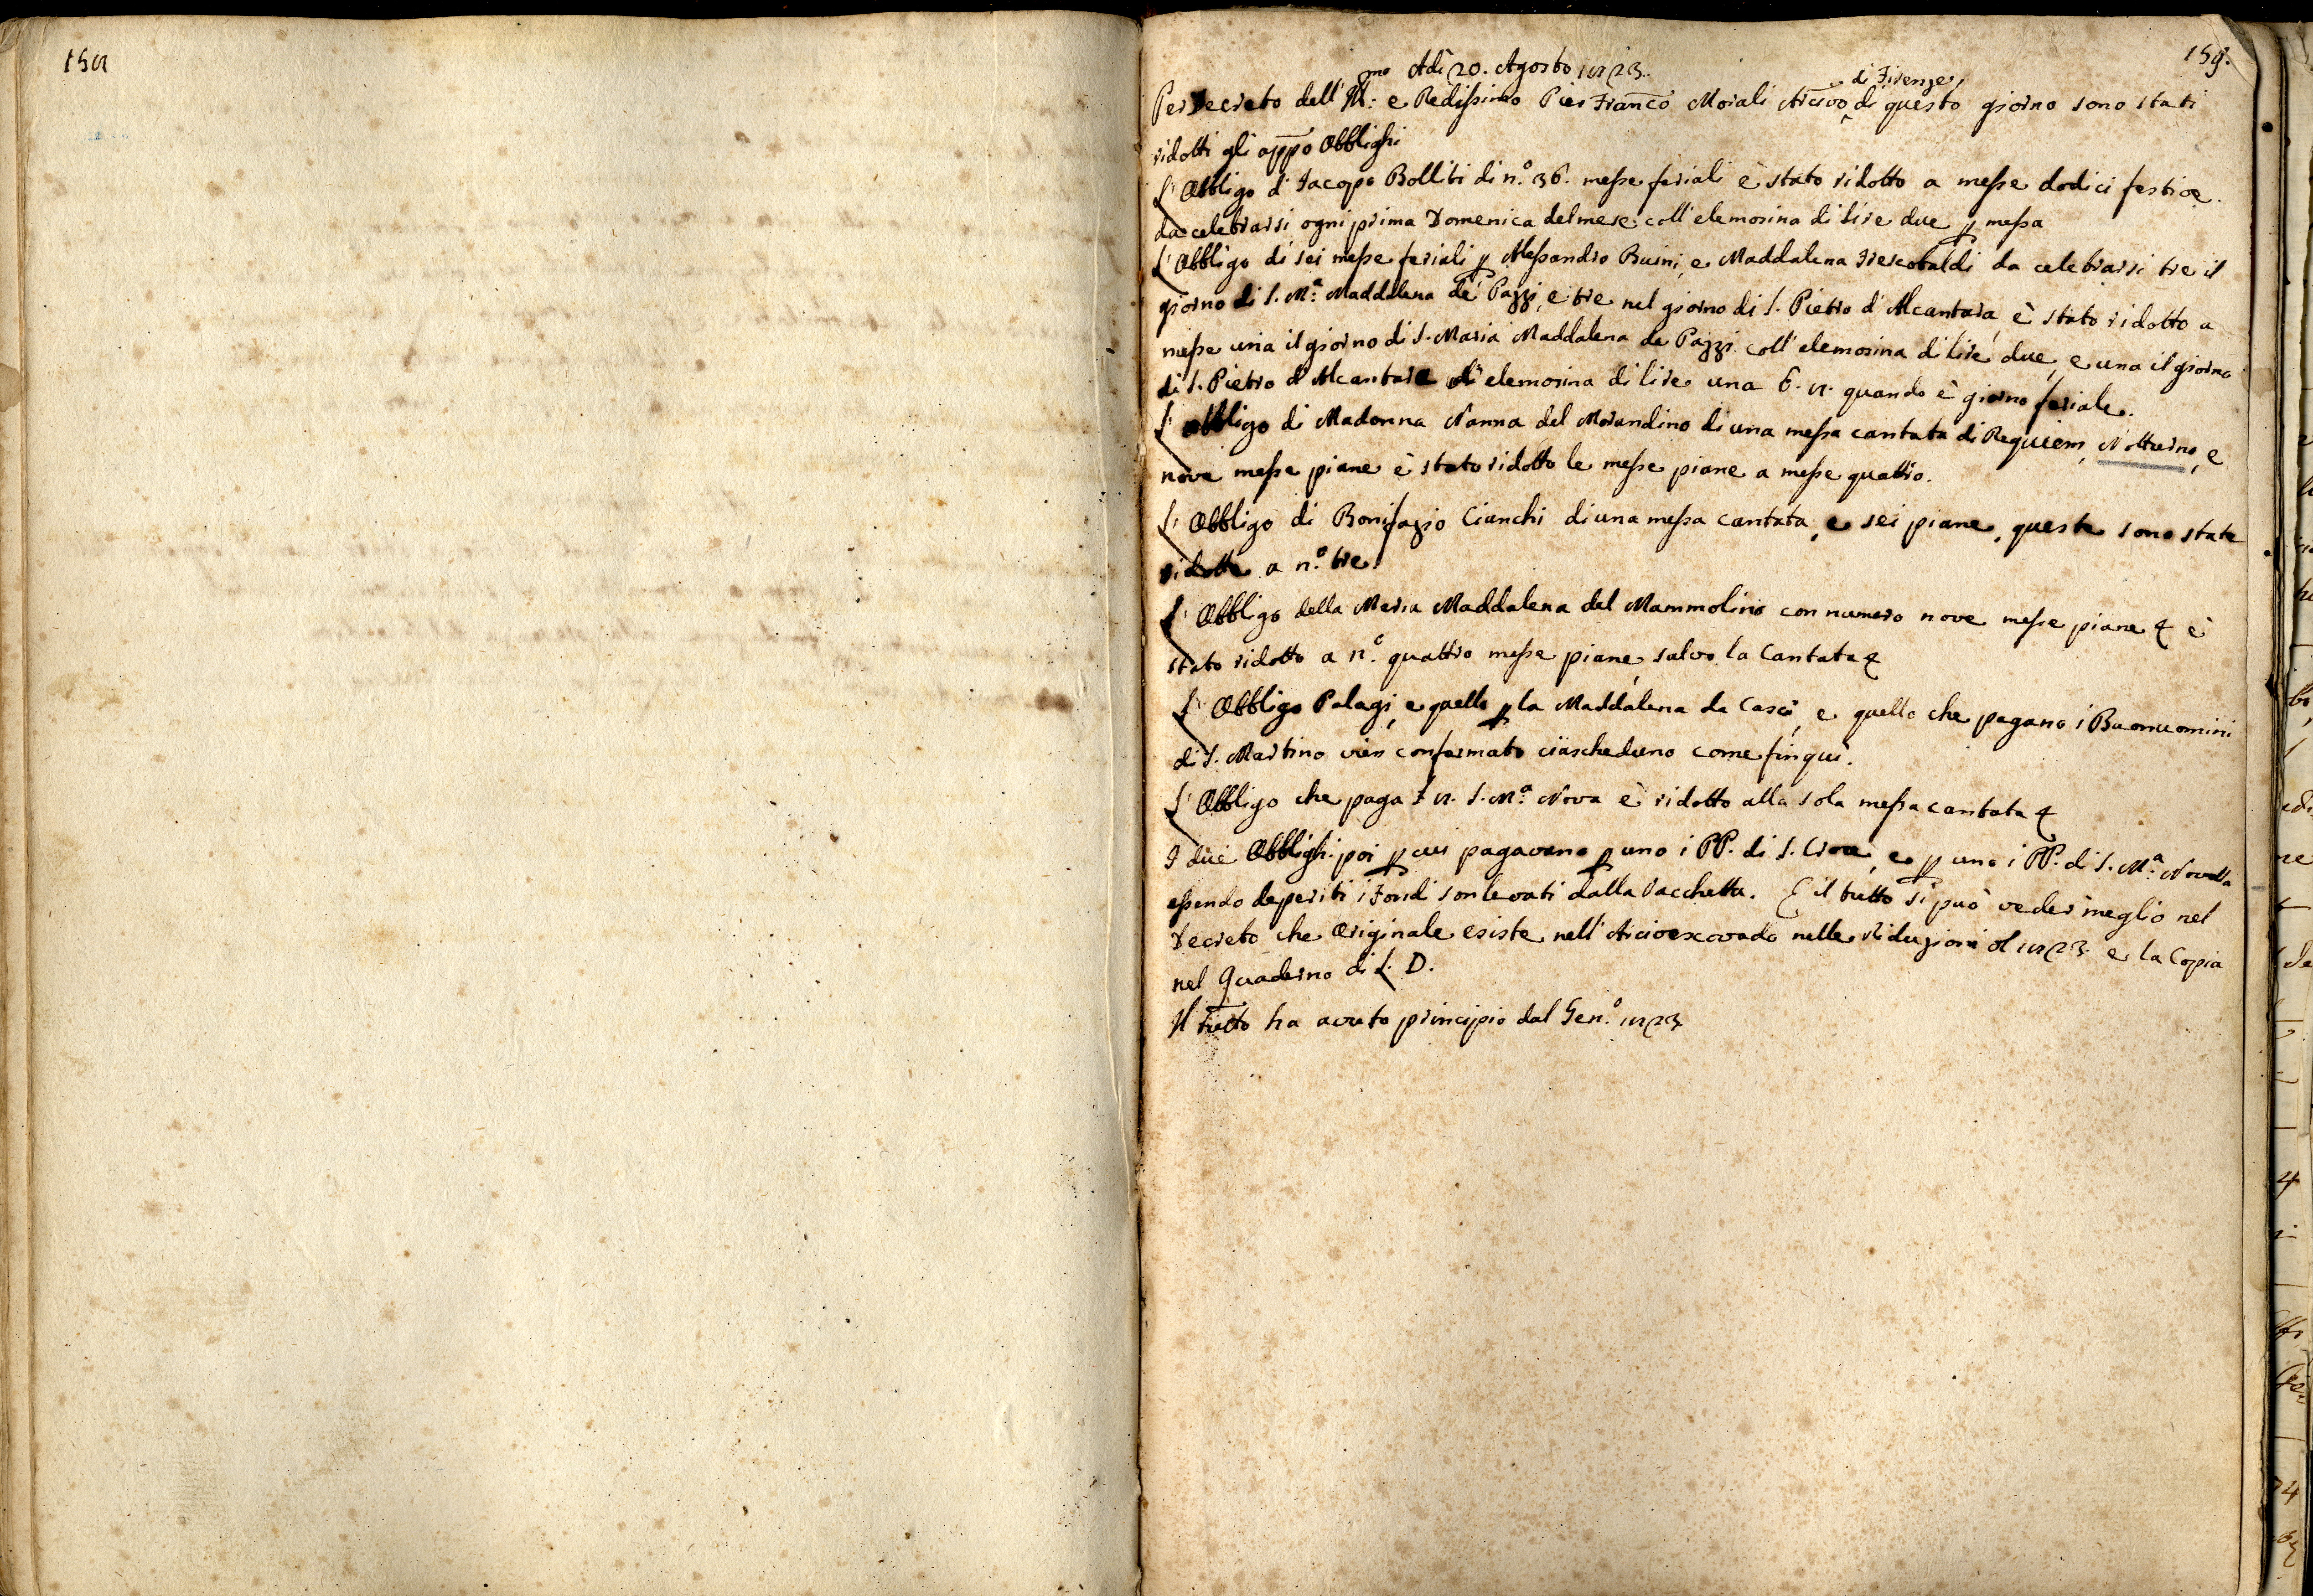 158
159.
Adì 20. Agosto 1823.
Per Decreto dell' Ill:mo e Redissimo Pier Franco Morali Arcivo di Firenze, di questo giorno sono stati
ridotti gli appo Obblighi
L'Obbligo d'Jacopo Bolliti di n.o 36. messe feriali è stato ridotto a messe dodici festive.
da celebrarsi ogni prima Domenica del mese coll'elemosina di lire due p messa
L'Obbligo di sei messe feriali p Alessandro Buini, e Maddalena Frescobaldi da celebrarsi tre il
giorno di S. M.a Maddalena de' Pazzi, e tre nel giorno di S. Pietro d'Alcantara, è stato ridotto a
messe una il giorno di S. Maria Maddalena de Pazzi coll'elemosina di lire due, e una il giorno
di S. Pietro d'Alcantara di elemosina di lire una 6. 8. quando è giorno feriale.
L'obbligo di Madonna Nanna del Morandino di una messa cantata di Requiem, Notturno, e
nove messe piane è stato ridotto le messe piane a messe quattro.
L'Obbligo di Bonifazio Cianchi di una messa cantata, e sei piane, queste sono state
ridotte a n.o tre.
L'Obbligo della Maria Maddalena del Mammolino con numero nove messe piane è
stato ridotto a n.o quattro messe piane, salvo la Cantata
L'Obbligo Palagi, e quello p la Maddalena da Casci, e quello che pagano i Buonuomini
di S. Martino vien confermato ciascheduno come fin qui.
L'Obbligo che paga £ 8. S. M.a Nova è ridotto alla sola messa cantata
I due Obblighi poi p cui pagavano p uno i PP. di S. Croce, e p uno i PP. di S. M.a Novella
essendo deperiti i Fondi son levati dalla Vacchetta. E il tutto si può veder meglio nel
Decreto che Originale esiste nell'Arcivescovado nelle Riduzioni del 1823. e la Copia
nel Quaderno di L. D.
Il tutto ha avuto principio dal Gen.o 1823